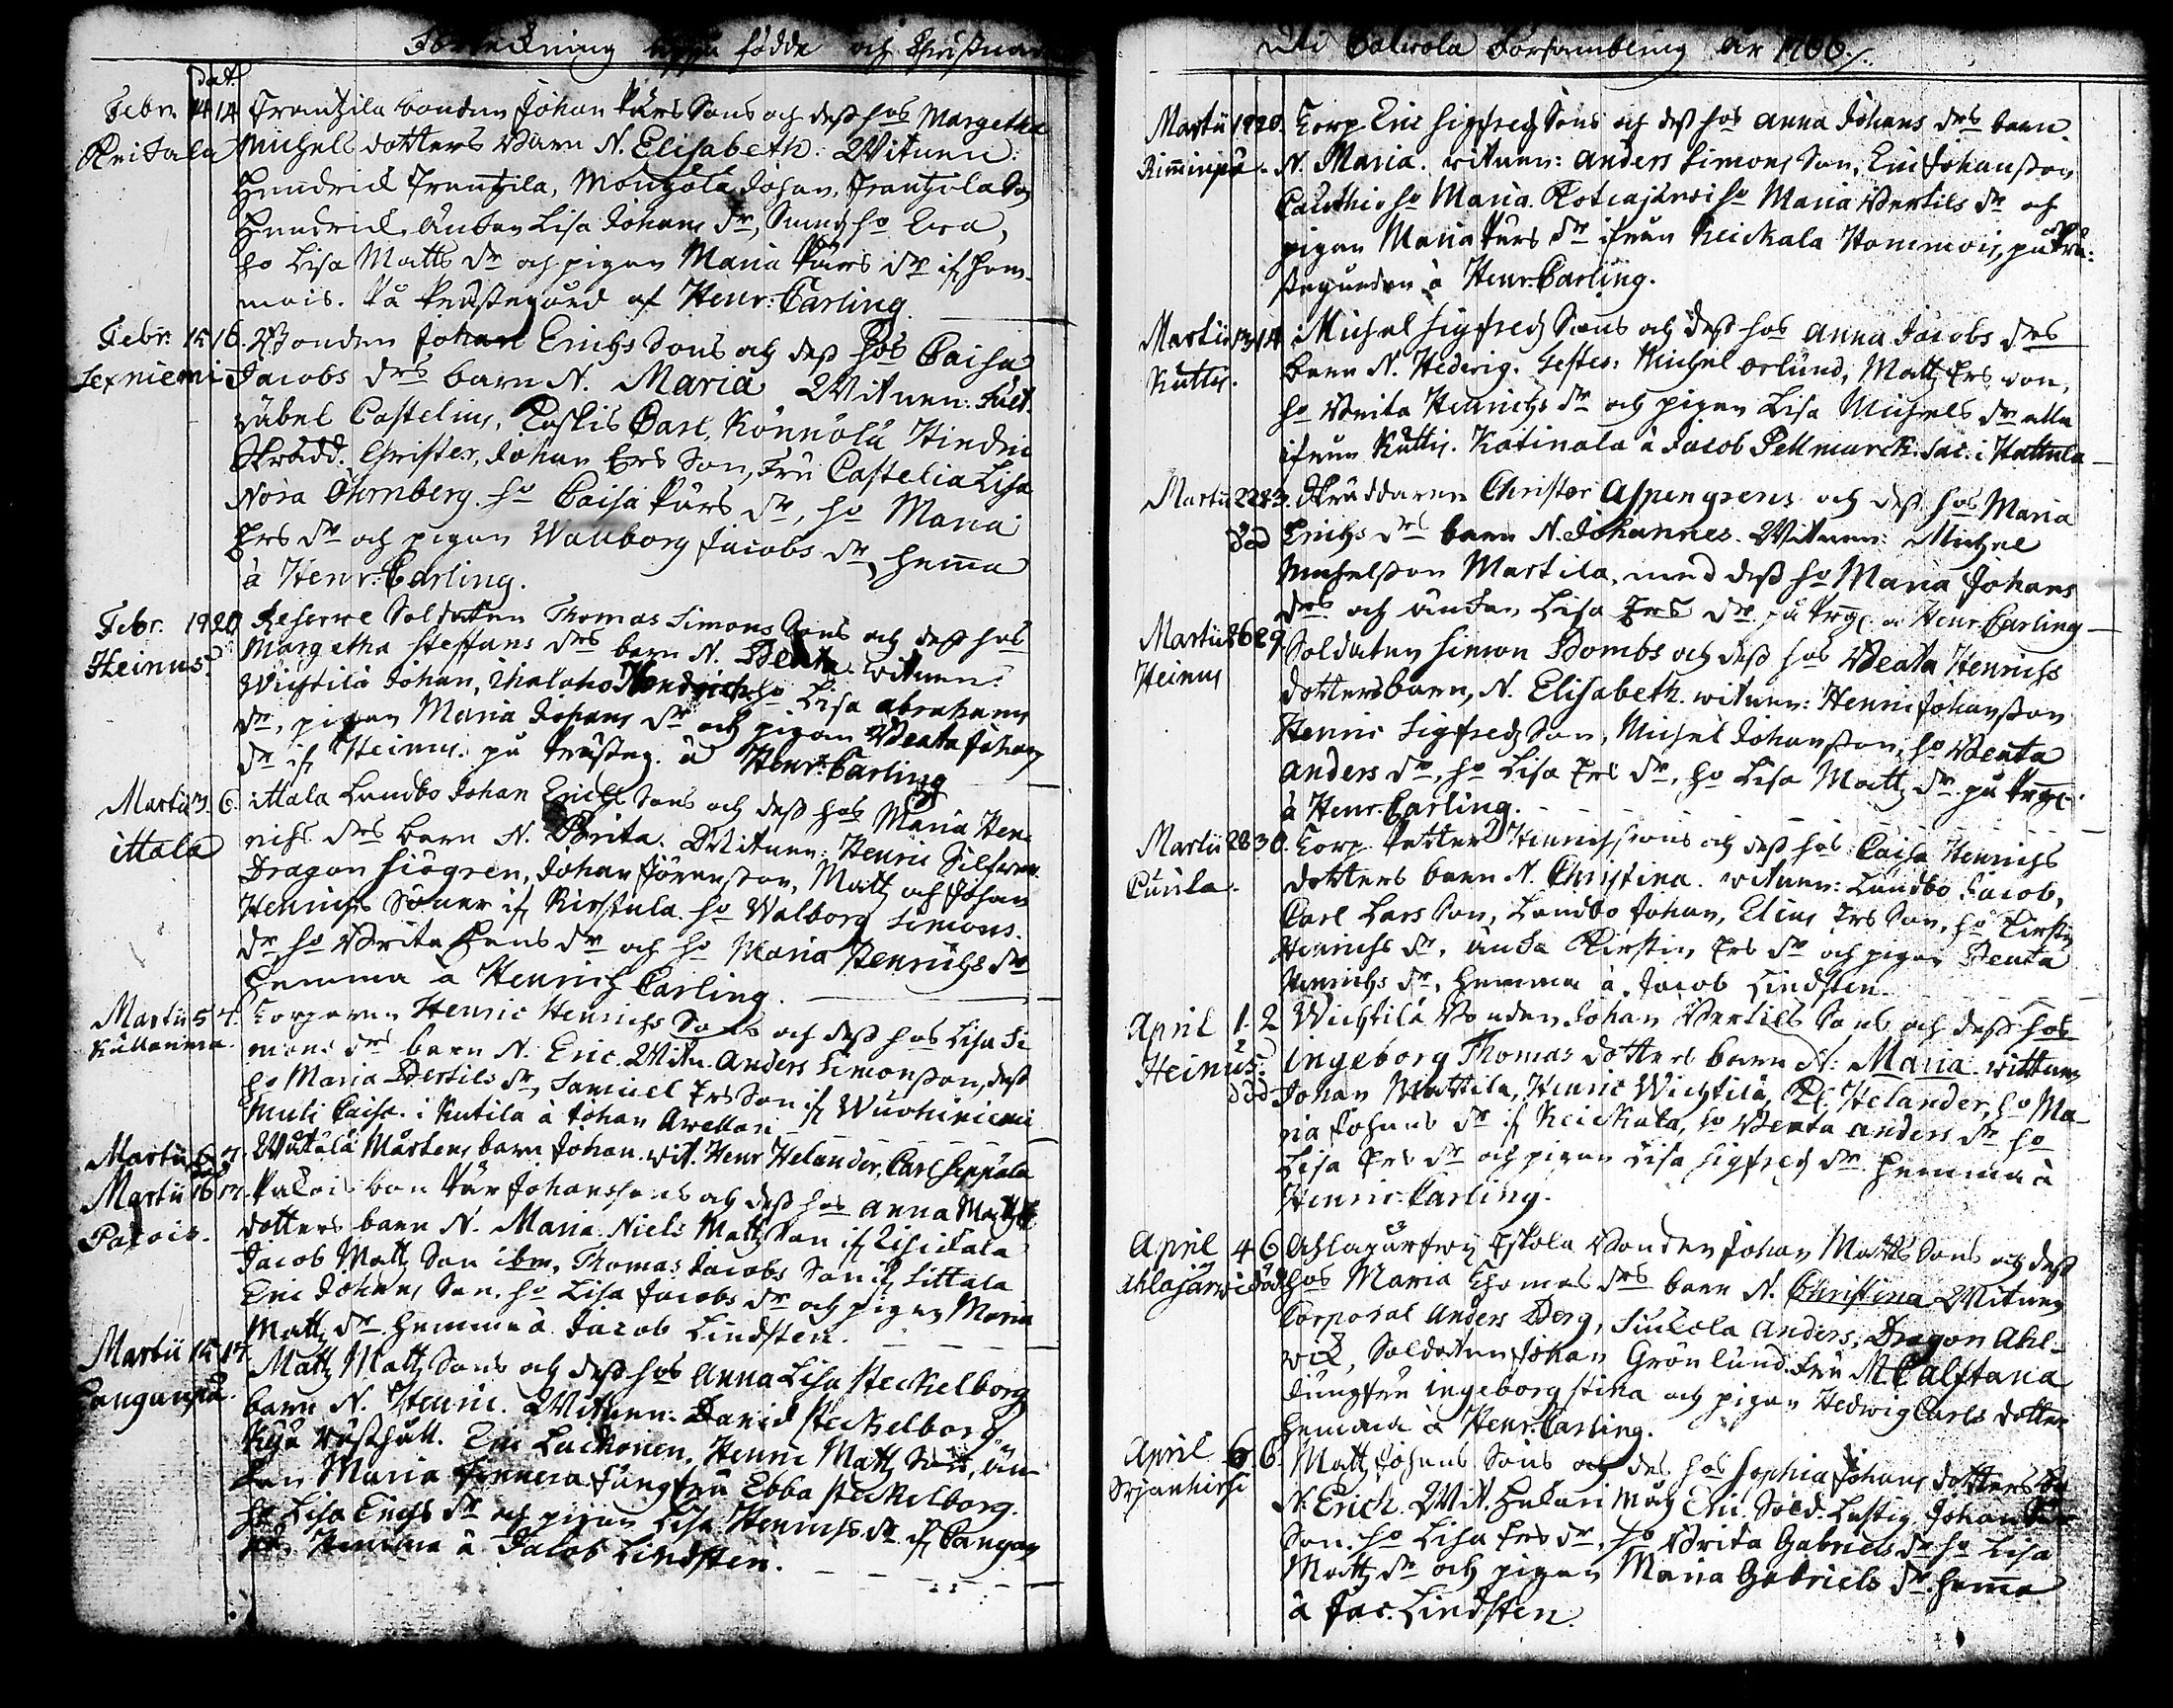 Förteckning uppå födde och Christnade
dat.
Febr. 14 14 Frantzila bonden Johan Pärs Sons och dess hos Margetha
Reikala Michels dotters Barn N. Elisabeth. Witnen:
Hendrick Frantzila, Johan, Frantzila Son
Hendrick, Änkan Lisa Johans dr, ho Eva,
ho Lisa Matts dr och pigan Maria Pärs dr if hom-
mois. På Prästegård af Henr: Carling.
Febr. 15 16. Bonden Johan Erichs Sons och dess hos Caisa
Lepniemi Jacobs drs barn N. Maria Witnen:
Castelius, Carl, Könnölä Hindric
Skrädd. Christer, Johan Ers Son, Fru Castelia Lisa
Nora Öhrnberg. ho Caisa Pärs dr, ho Maria
Ers dr och pigan Wallborg Jacobs dr, hema
à Henr: Carling.
Febr. 19 20 Reserwe Soldaten Thomas Simons Sons och dess hos
Heinus. Margetha Steffans drs barn N. Beata witnen:
Wichtilä Johan, Hendrich. ho Lisa abrahams
dr, pigan Maria Johans dr och pigan Beata Johans
dr if Heinus. på Prästeg. à Henr: Carling
Martii 3. 6. ittala Landbo Johan Erichs Sons och dess hos Maria Hen-
ittala richs drs barn N. Brita. Witnen: Henric
Dragon Siögren, Johan Jöransson, Matts och Johan
Henrichs Söner if Kirstula. ho Walborg Simons
dr ho Brita Hans dr och ho Maria Henrichs dr
hemma à Henrich Carling.
Martii 5 7. Corporen Henric Henrichs Sons och dess hos Lisa Si-
mons drs barn N. Eric. Witn. Anders Simonsson, dess
ho Maria Bertils dr, Samuel Ers Son if Wuohiniemi
Caisa. i Kutila à Johan Awellan
Martii 6 7. Mårtens barn Johan. wit. Henr Helander, Carl Seppälä
Martii 16 17. Palois bon Pär Johanssons och dess hos Anna Matts
Palois. dotters barn N. Maria. Niels Matts Son if
Jacob Matts Son ibm, Thomas Jacobs Son if Littala
Eric Johans Son. ho Lisa Jacobs dr och pigan Maria
Matts dr. hemma à Jacob Lindsten.
Martii 15 17. Matts Matts Sons och dess hos Anna Lisa Steckelborg
barn N. Henric. Witnen: David Steckelborg
Eric Lackonen, Henric Matts Son, än-
kan Maria Jungfru Ebba Steckelborg.
ho Lisa Erichs dr och pigan Lisa Henrichs dr if
Hemma à Jacob Lindsten.
uti Calwola Försambling år 1766.
Martii 19 20. Corp. Eric Sigfreds Sons och dess hos Anna Johans drs barn
N. Maria. witnen: Anders Simons Son, Eric Johansson
ho Maria. ho Maria Bertils dr och
pigan Maria Pärs dr ifrån Reickala Hommois, på Prä-
stegården à Henr: Carling.
Martii 13 14. Michel Sigfreds Sons och dess hos Anna Jacobs drs
Kuttis. barn N. Hedvig. Testes: Michel Orlund, Matts Ers son,
ho Brita Henrichs dr och pigan Lisa Michels dr alla
ifrån Kuttis. Katinala à Jacob Pellmarck. Sac. i Hattula
Martii 22 23. Skräddaren Christer Aspengrens och dess hos Maria
död Erichs drs barn N. Johannes. Witnen: Michel
Michelsson Martila, med dess ho Maria Johans
drs och änkan Lisa Ers dr. på à Henr. Carling
Martii 26 29. Soldaten Simon Bombs och dess hos Beata Henrichs
Heinus dotters barn, N. Elisabeth. witnen: Henric Johansson
Henric Sigfreds Son, Michel Johansson, ho Beata
Anders dr, ho Lisa Ers dr, ho Lisa Matts dr. på
à Henr. Carling.
Martii 28 30. Corp. Petter Henrichssons och dess hos Caisa Henrichs
dotters barn N. Christina. witnen: Landbo Jacob,
Carl Lars Son, Landbo Johan, Elias Ers Son, ho Kirstin
Henrichs dr, Änka Kirstin Ers dr och pigan Beata
Henrichs dr, hemma à Jacob Lindsten.
April 1. 2 Wichtilä Bonden Johan Bertils Sons och dess hos
Heinus. Ingeborg Thomas dotters barn N: Maria. wittnen
död Johan Mattila, Henric Wichtilä, Helander, ho Ma-
ria Johans dr if Reickala, ho Beata Anders dr ho
Lisa Ers dr och pigan Lisa Sigfreds dr. hemma à
Henric Carling.
April 4 6 Eskola Bonden Johan Matts Sons och dess
Ahlajärwi död hos Maria Thomas drs barn N. Christina Witnen
Corporal Anders Berg, Anders, Dragon Ahl-
wik, Soldaten Johan Grönlund. Fru M.
Jungfru Ingeborg Stina och pigan Hedwig Carls dotter
hemma à Henr. Carling.
April 6 6. Matts Johans Sons och des hos Sophia Johans dotters
N. Erich. Wit. Eric. Sold. Lustig, Johan
Son. ho Lisa Ers dr, ho Brita Gabriels dr ho Lisa
Matts dr och pigan Maria Gabriels dr. hema
à Jac. Lindsten.